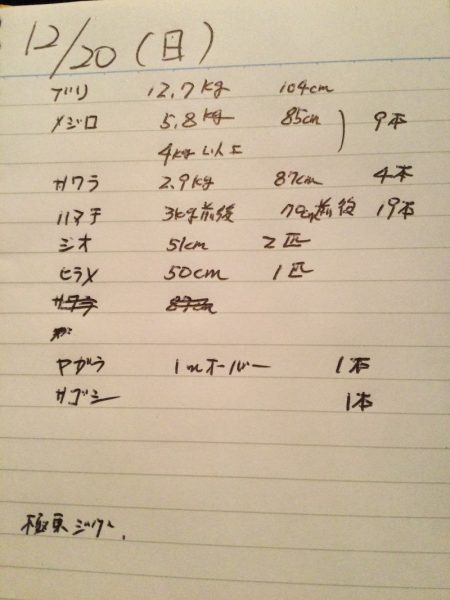 12/20 (日)
ブリ 12.7kg 104cm
メジロ 5.8kg 85cm 9本
4kg以上
サワラ 2.9kg 87cm 4本
ハマチ 3kg前後 70cm前後 19本
シオ 51cm 2匹
ヒラメ 50cm 1匹
サワラ 87cm
ヤガラ 1mオーバー 1本
サゴシ 1本
極東ジグ、